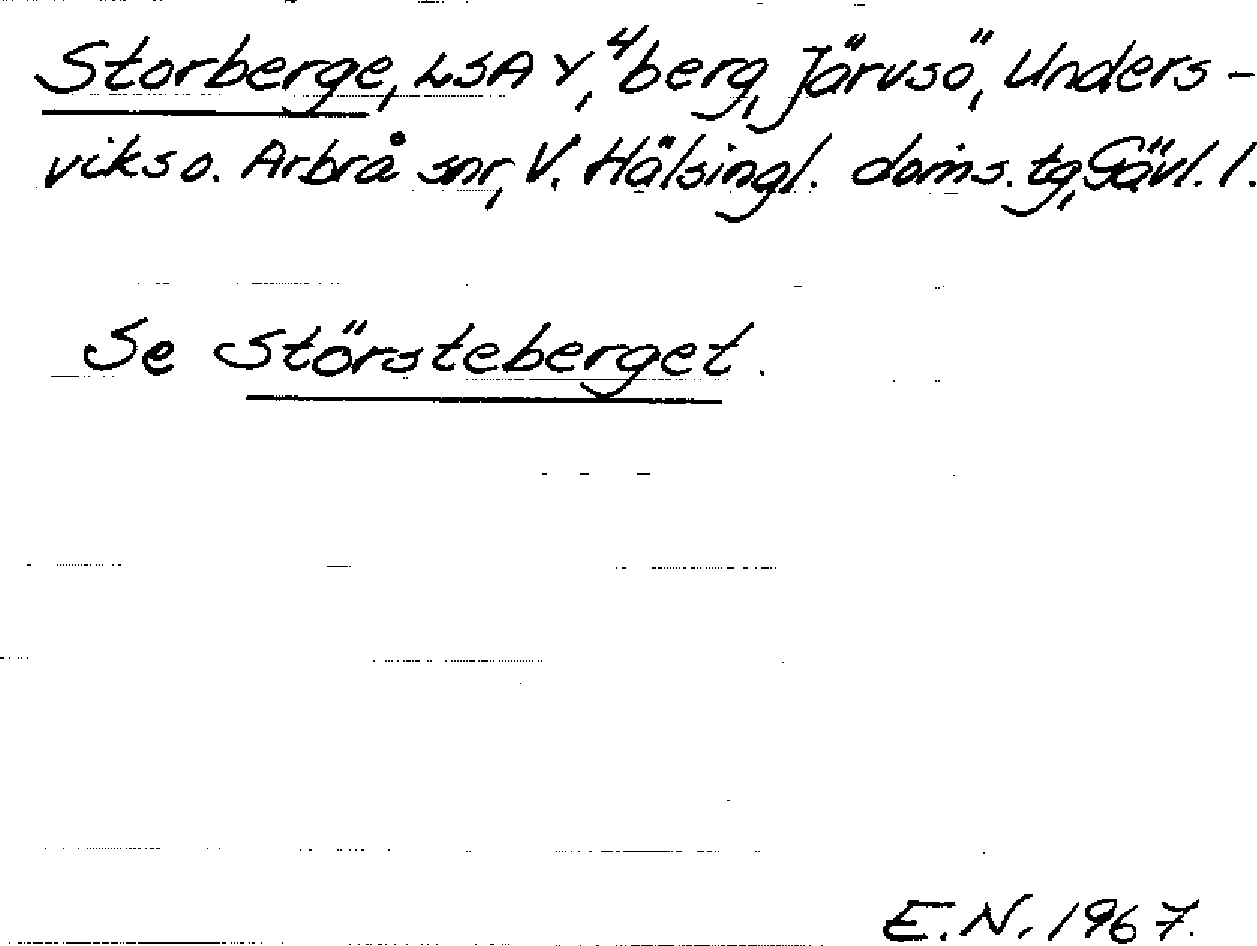 Storberge, LSA Y, ⁴berg, Järvsö, Unders-
viks o. Arbrå snr, V. Hälsingl. doms. tg, Gävl. l.
Se Störsteberget.
E.N. 1967.